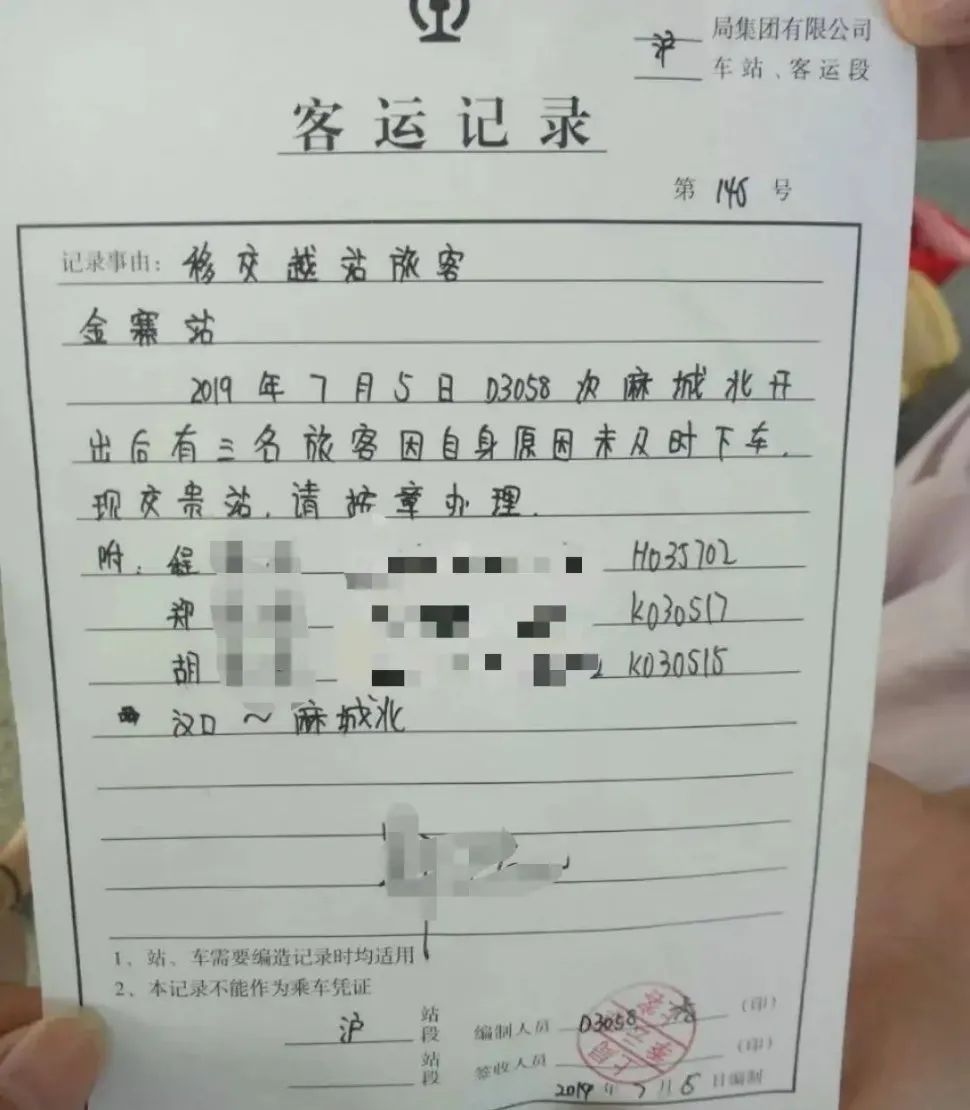 沪 局集团有限公司
车站、客运段
客运记录
第 145 号
记录事由：移交越站旅客
金寨站
2019年7月5日D3058次麻城北开
出后有三名旅客因自身原因未及时下车.
现交贵站,请按章办理.
附：程 H035702
郑 K030517
胡 K030515
汉口～麻城北
1、站、车需要编造记录时均适用
2、本记录不能作为乘车凭证
沪 站段 编制人员 D3058 (印)
站段 签收人员 (印)
2019年7月5日编制